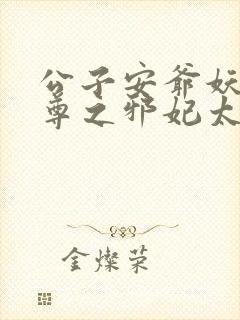 公子安爷妖
尊之邪妃太
金灿荣